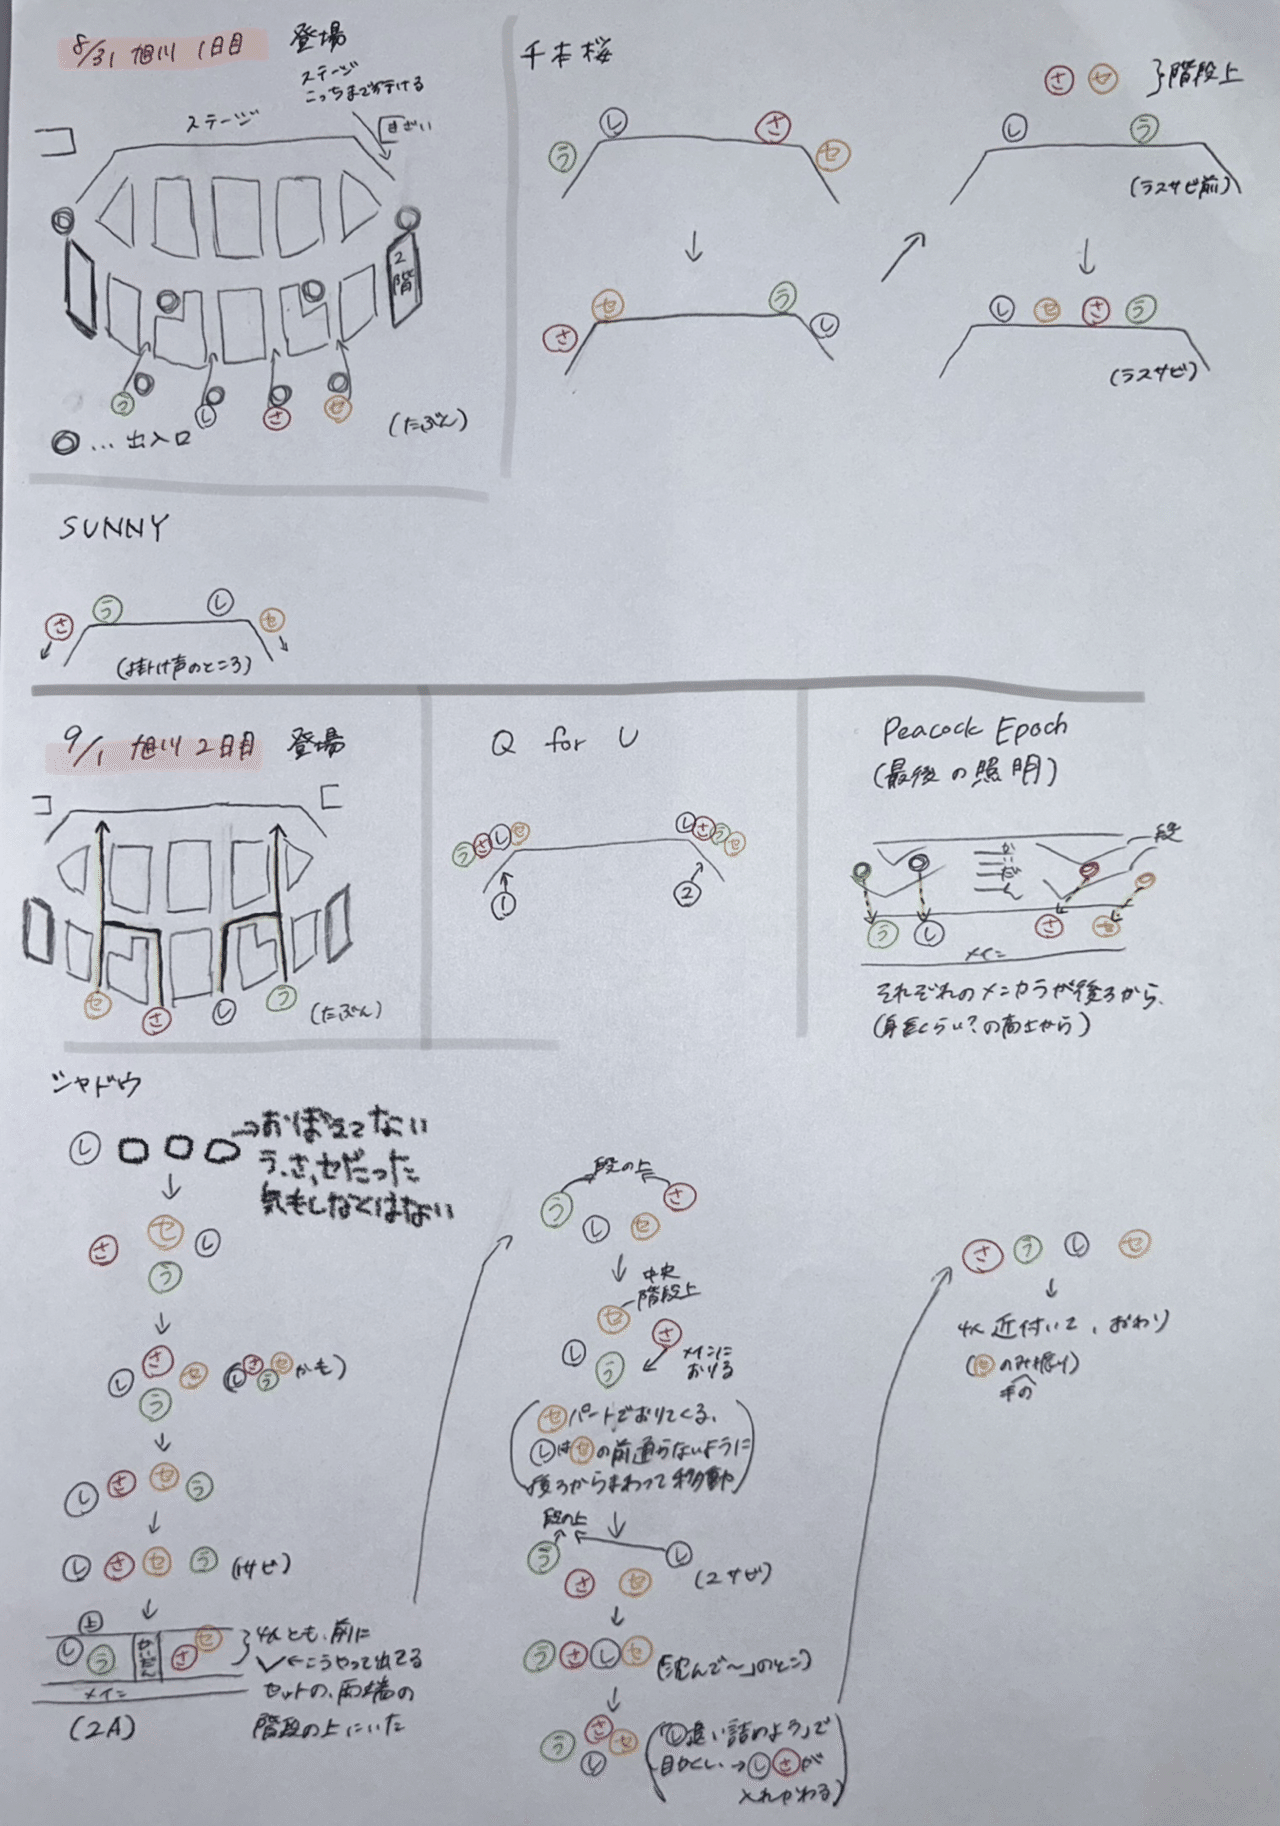 8/31 旭川 1日目 登場
ステージ
こっちまで行ける
ステージ
きざい
2階
ラ し さ セ
(たぶん)
◎…出入口
千本桜
ラ し さ セ
さ セ ラ し
さ セ }階段上
し ラ
(ラスサビ前)
し セ さ ラ
(ラスサビ)
SUNNY
さ ラ し セ
(掛け声のところ)
9/1 旭川 2日目 登場
セ さ し ラ
(たぶん)
Q for U
ラ さ し セ
し さ ラ セ
① ②
Peacock Epoch
(最後の照明)
段
かいだん
ラ し さ セ
メイン
それぞれのメンカラが後ろから、
(身長くらい?の高さから)
シャドウ
し →おぼえてない
ラ、さ、セだった
気もしなくはない
さ セ し
ラ
し さ セ
ラ
(し さ ラ セ かも)
し さ セ ラ
し さ セ ラ (1サビ)
上
し ラ かいだん さ セ
メイン
(2A)
4人とも、前に
←こうやって出てる
セットの、両端の
階段の上にいた
段の上
ラ し セ さ
中央
階段上
セ
さ
し ラ
メインに
おりる
(セパートでおりてくる、
しはセの前通らないように
後ろからまわって移動)
段の上
ラ さ セ し
(2サビ)
ラ さ し セ (「沈んで〜」のとこ)
ラ さ セ
し
(「し追い詰めよう」で
目かくし→し さが
入れかわる)
さ ラ し セ
4人近付いて、おわり
(セのみ振り)
手の